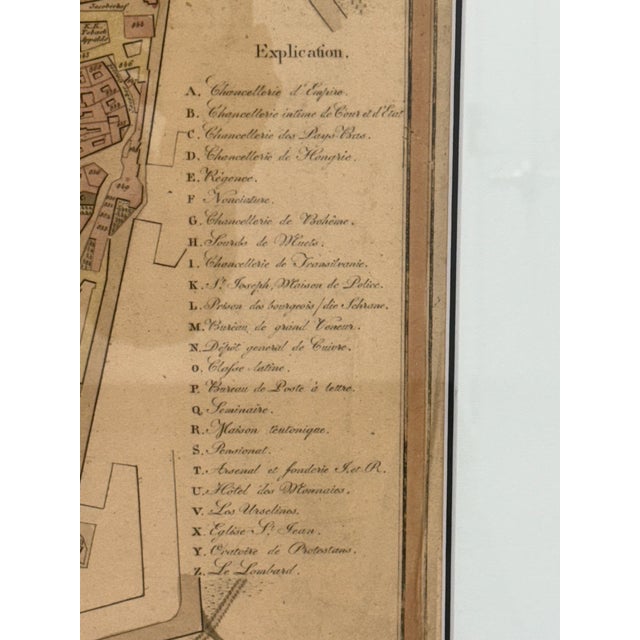 Jacoberhof
K.K.
Taback
Explication.
A. Chancellerie d'Empire.
B. Chancellerie intime de Cour et d'Etat
C. Chancellerie des Pays Bas.
D. Chancellerie de Hongrie.
E. Régence.
F Nonciature.
G. Chancellerie de Bohême.
H. Sourds de Muets.
I. Chancellerie de Transilvanie.
K. St. Joseph, Maison de Police.
L. Prison des bourgeois /die Schrane.
M. Bureau de grand Veneur.
N. Dépôt general de Cuivre.
O. Classe latine.
P. Bureau de Poste à lettre.
Q. Seminaire.
R. Maison teutonique.
S. Pensionat.
T. Arsenal et fonderie I. et R.
U. Hôtel des Monnaies.
V. Les Urselines.
X. Eglise St. Jean.
Y. Oratoire de Protestans.
Z. Le Lombard.